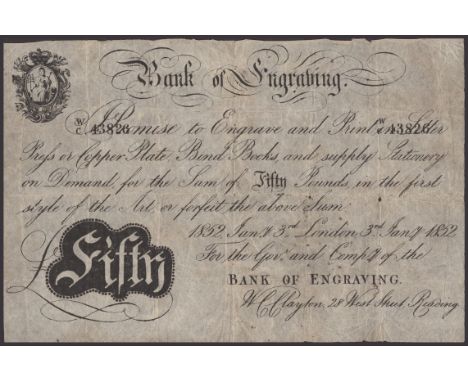 Bank of Engraving.
W/C 43826 I Promise to Engrave and Print in Letter W/C 43826
Press or Copper Plate, Bind Books, and supply Stationery
on Demand, for the Sum of Fifty Pounds, in the first
style of the Art, or forfeit the above Sum.
1852. Jany 3rd London, 3rd Jany 1852
For the Govr and Compy of the
BANK OF ENGRAVING.
£ Fifty
W. C. Clayton, 28 West Street, Reading